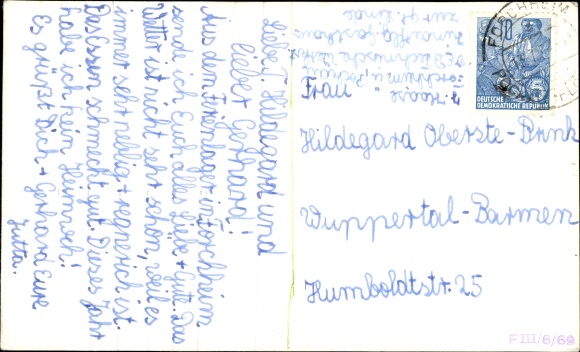 Liebe Hildegard und
lieber Gerhard!
Aus dem Ferienlager in Forchheim
sende ich Euch alles Liebe + Gute. Das
Wetter ist nicht sehr schön, weil es
immer sehr neblig + regnerisch ist.
Das Essen schmeckt gut. Dieses Jahr
habe ich kein Heimweh!
Es grüßt Dich + Gerhard Eure
Jutta.
Forchheim
Frau
Hildegard Oberste-Brink
Wuppertal-Barmen
Humboldtstr. 25
FORCHHEIM
10
DEUTSCHE
DEMOKRATISCHE REPUBLIK
F III/6/69